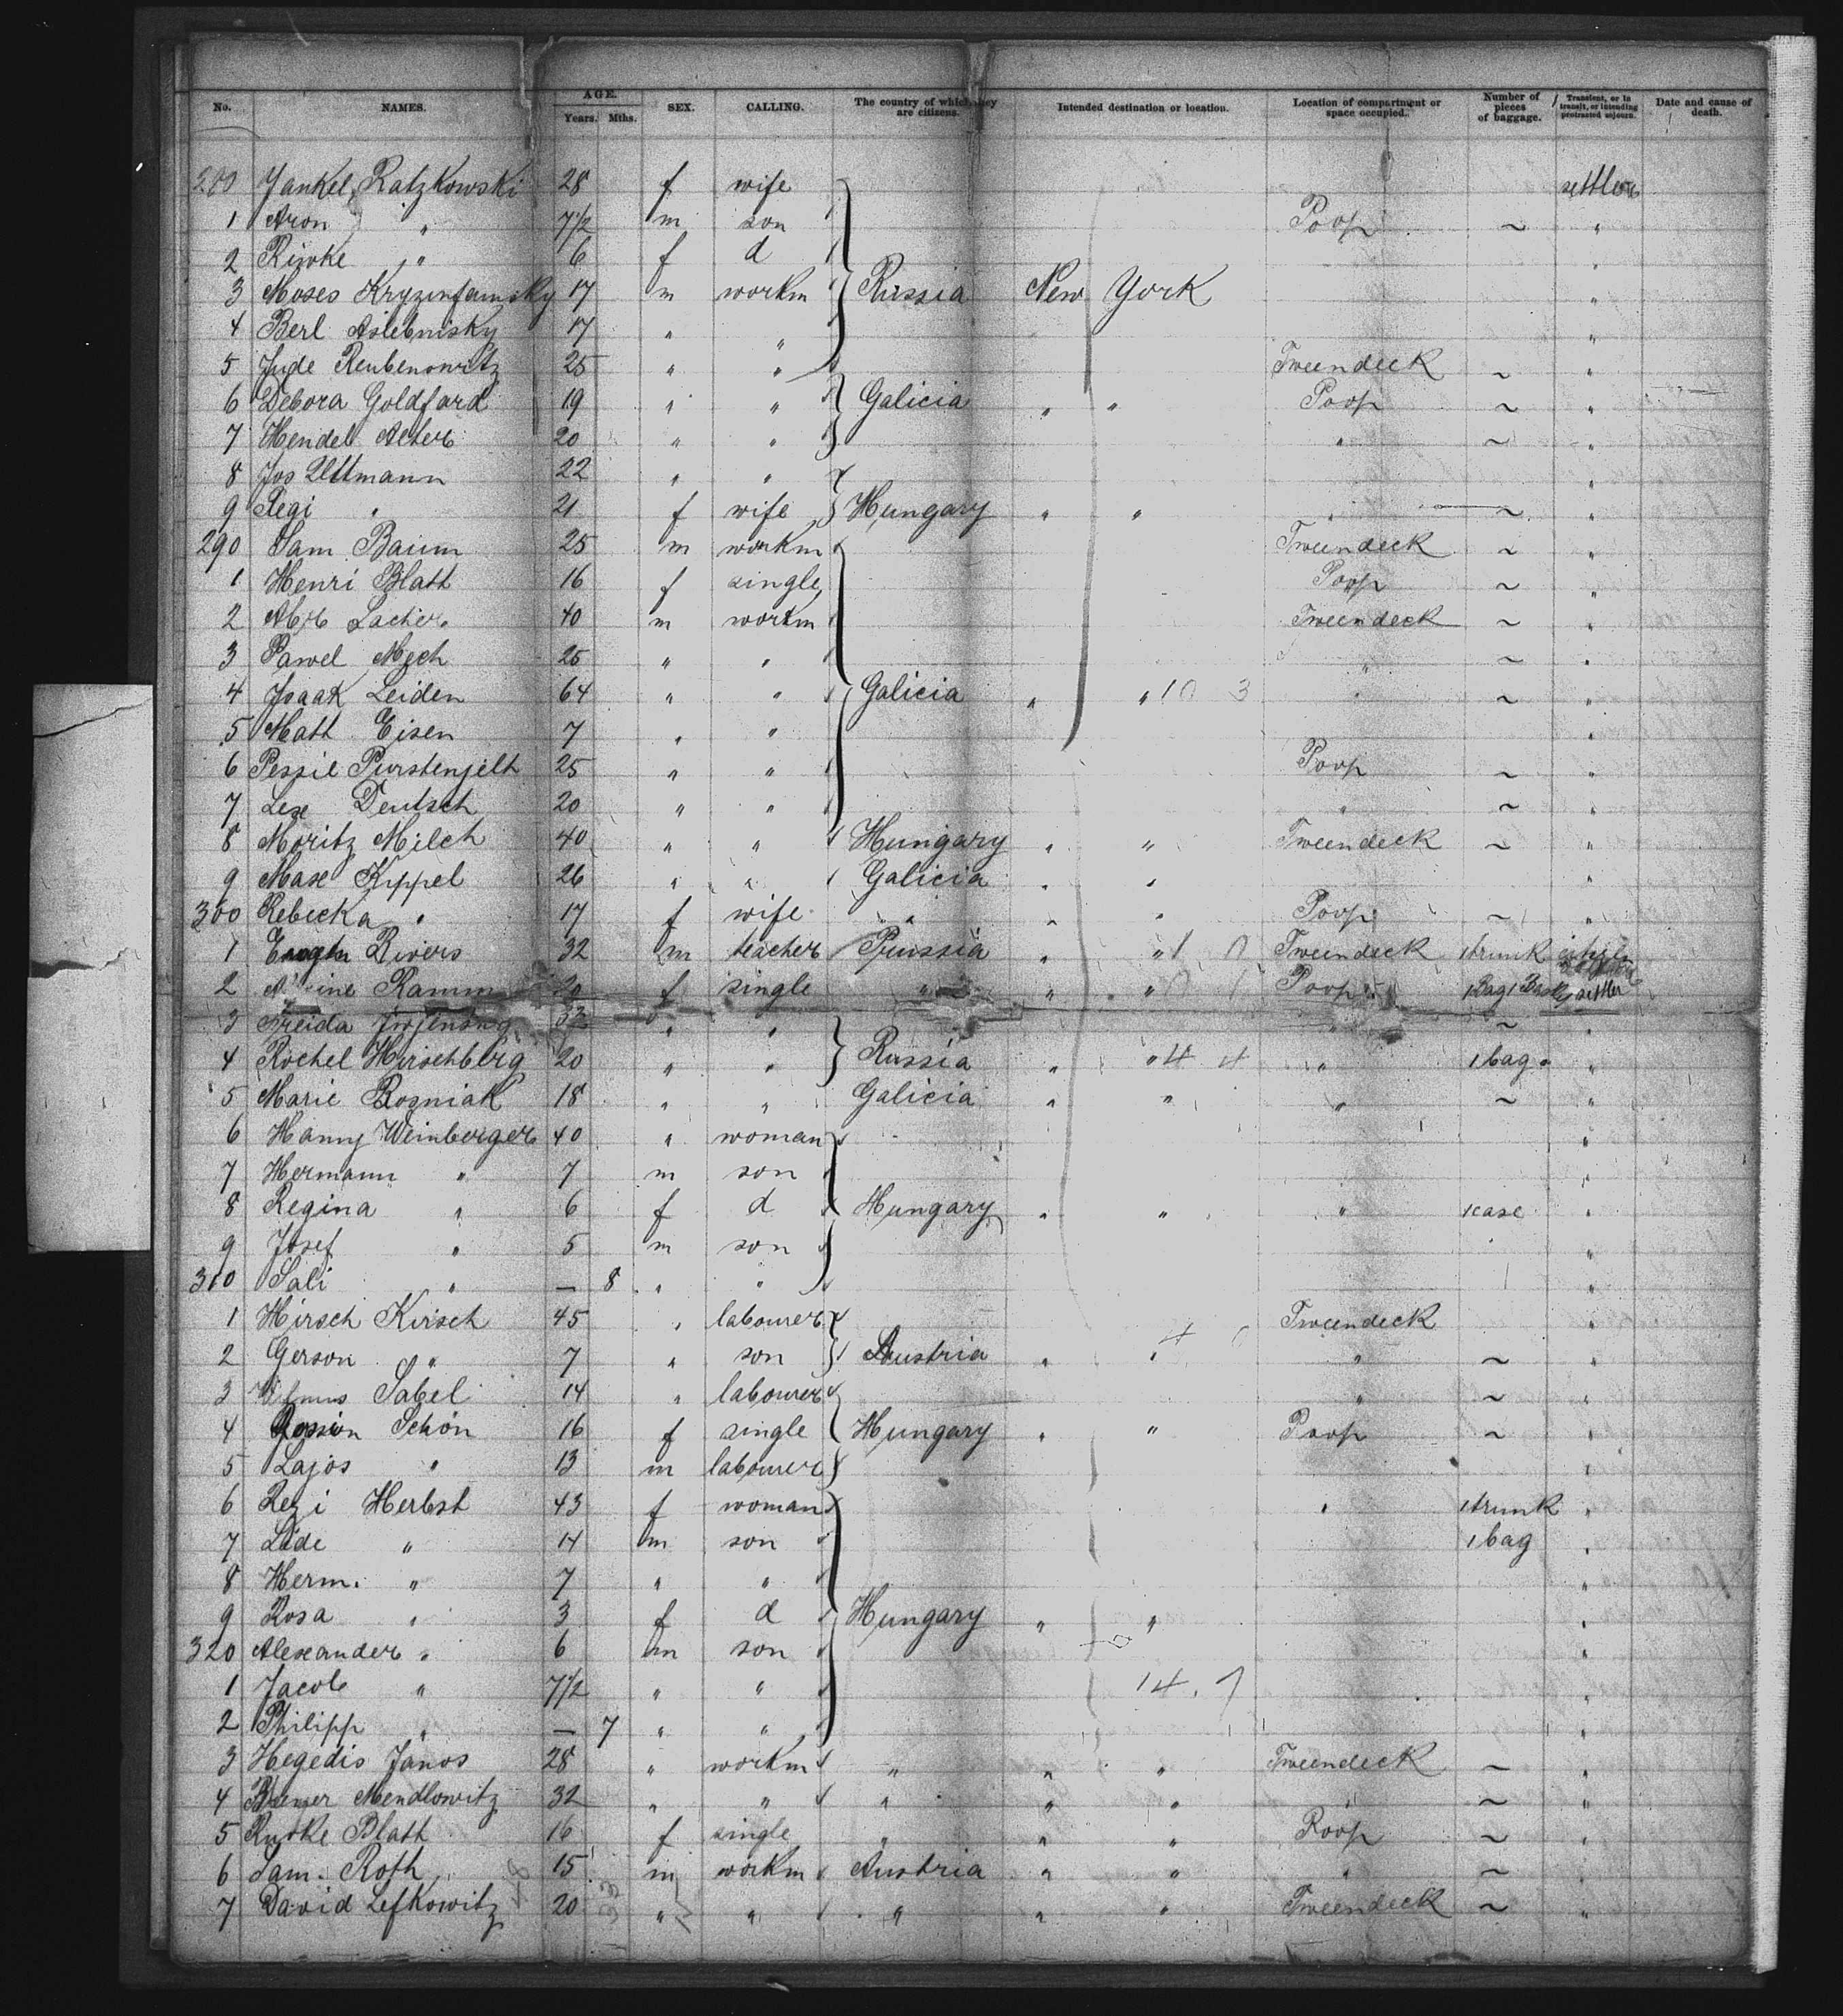 No. NAMES. AGE. Years. Mths. SEX. CALLING. The country of which they are citizens. Intended destination or location. Location of compartment or space occupied. Number of pieces of baggage. Transient, or in transit, or intending protracted sojourn. Date and cause of death.
280 Jankel Ratzkowski 28 f wife settler
1 Aron " 7 1/2 m son Poop ~ "
2 Riwke " 6 f d "
3 Moses 17 m workm Russia New York "
4 Berl 17 " " "
5 Jude Reubenowitz 25 " " Tweendeck ~ "
6 Debora Goldfard 19 " " Galicia " " Poop ~ "
7 Hendel Alter 20 " " " ~ "
8 Jos Ultmann 22 " " "
9 Regi " 21 f wife Hungary " " " ~ "
290 Sam Baum 25 m workm Tweendeck ~ "
1 Henri Blath 16 f single Poop ~ "
2 Lacher 40 m workm Tweendeck ~ "
3 Pawel Mech 25 " " " ~ "
4 Isaak Leiden 64 " " Galicia " " 10 3 " ~ "
5 Math Eisen 7 " " "
6 Pessie 25 " " Poop ~ "
7 Lese Deutsch 20 " " " ~ "
8 Moritz Milch 40 " " Hungary " " Tweendeck ~ "
9 Max Kippel 26 " " Galicia " " "
300 Rebecka " 17 f wife " " " Poop ~ "
1 Rivers 32 m teacher Prussia " " 1 0 Tweendeck 1 trunk
2 Ramm 20 f single " " " Poop 1 Bag 1 Bask settler
3 Freida " " " ~ "
4 Rochel Hirschberg 20 " " Russia " " 4 4 " 1 bag "
5 Marie Rosniak 18 " " Galicia " " " ~ "
6 Hanny Weinberger 40 " woman "
7 Hermann " 7 m son "
8 Regina " 6 f d Hungary " " " 1 case "
9 Josef " 5 m son "
310 Sali " — 8 " " "
1 Hirsch Kirsch 45 " labourer Tweendeck "
2 Gerson " 7 " son Austria " " " ~ "
3 Sabel 14 " labourer " ~ "
4 Schön 16 f single Hungary " " Poop ~ "
5 Lajos " 13 m labourer "
6 Rezi Herbst 43 f woman " 1 trunk "
7 Lide " 14 m son 1 bag "
8 Herm. " 7 " " "
9 Rosa " 3 f d Hungary " " "
320 Alexander " 6 m son "
1 Jacob " 7 1/2 " " 14. 7 "
2 Philipp " — 7 " " "
3 Hegedis Janos 28 " workm " " " Tweendeck ~ "
4 Mendlowitz 32 " " " " " " ~ "
5 Blath 16 f single " " " Poop ~ "
6 Sam. Roth 15 m workm Austria " " " ~ "
7 David Lefkowitz 20 " " " " " Tweendeck ~ "